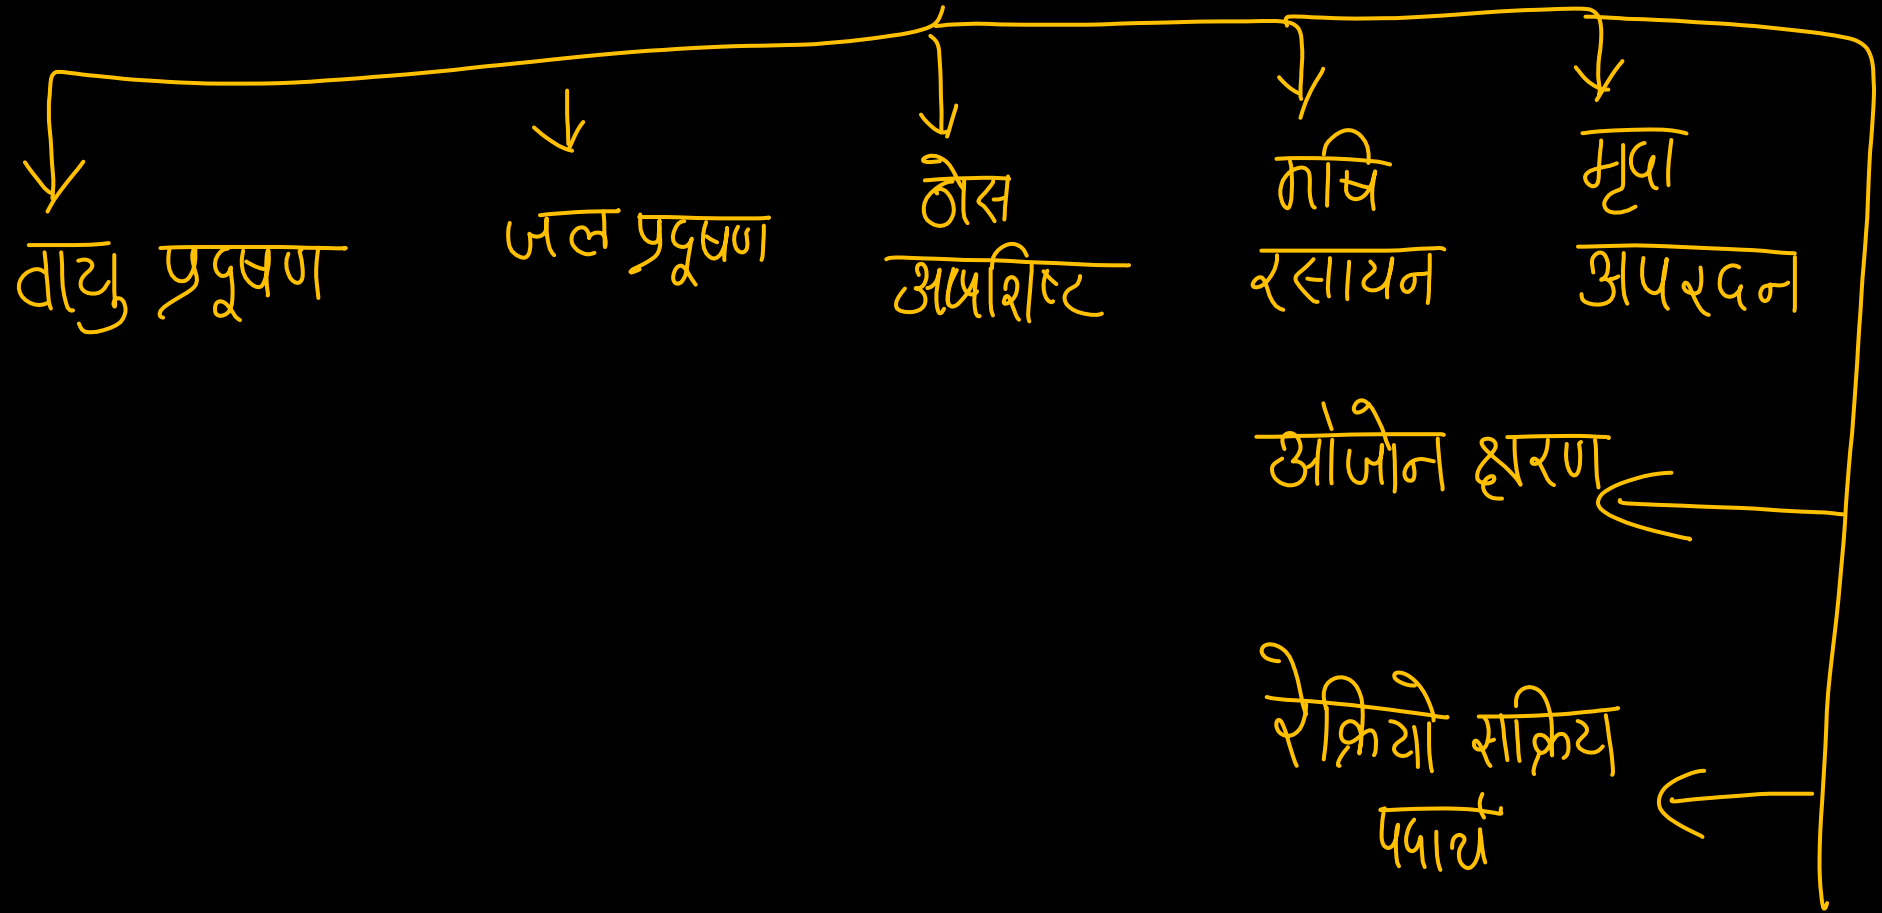 वायु प्रदूषण
जल प्रदूषण
ठोस
अपशिष्ट
कृषि
रसायन
मृदा
अपरदन
ओजोन क्षरण
रेडियो सक्रिय
पदार्थ